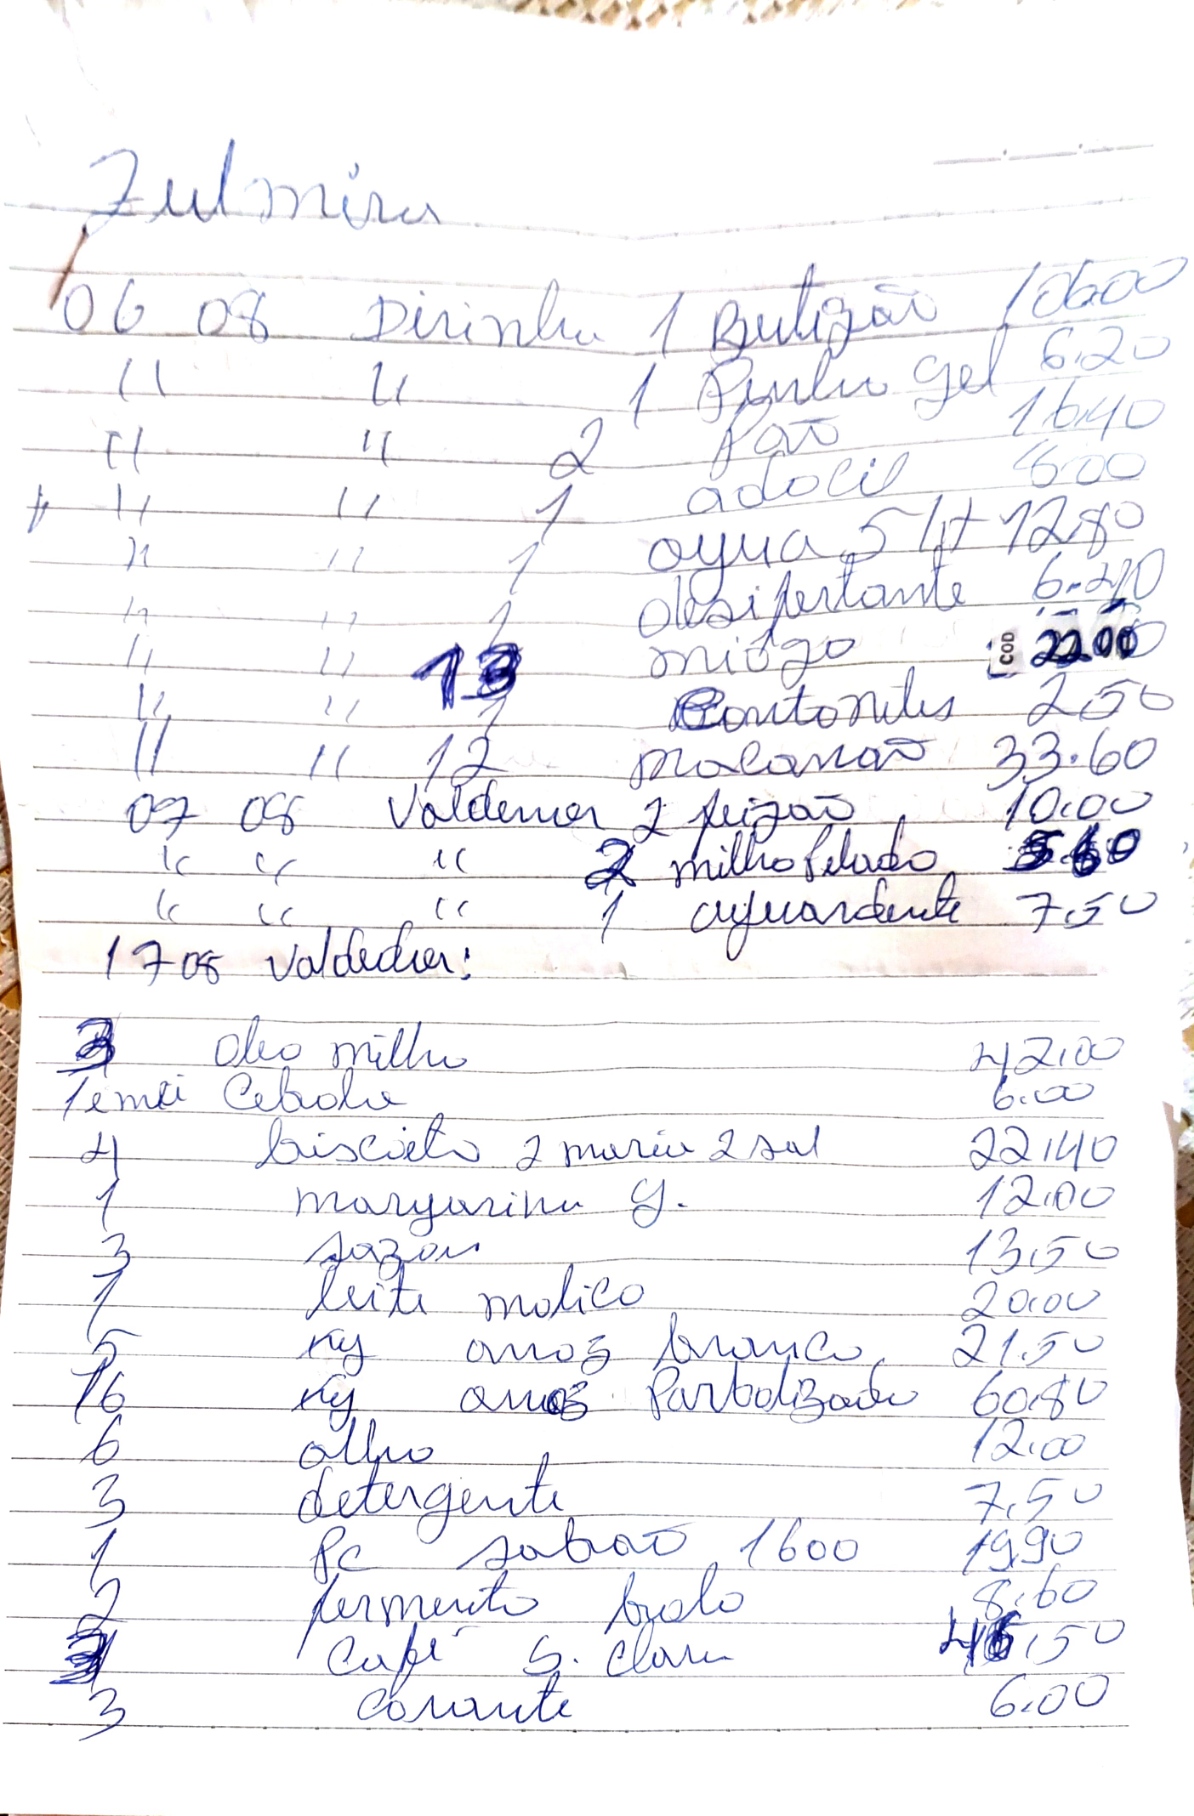 Zulmira
06 08 Dirinha 1 Butijão 106.00
" " 1 Pinho gel 6.20
" " 2 Pão 16.40
" " 1 adocil 8.00
" " 1 agua 5 lit 12.80
" " 1 desifertante 6.20
" " 13 miojo COD 22.00
" " 1 Contonetes 2.50
" " 12 macarrão 33.60
07 08 Valdemer 2 feijão 10.00
" " " 2 milho Pelado 5.60
" " " 1 aguardente 7.50
17 08 Valdeci:
3 oleo milho 42.00
1 e mei Cebola 6.00
4 biscoito 2 maria 2 sal 22.40
1 margarina g. 12.00
3 sazon 13.50
1 leite molico 20.00
5 kg arroz branco 21.50
16 kg arroz Parbolizado 60.80
6 alho 12.00
3 detergente 7.50
1 Pc sabão 1600 19.90
2 fermento bolo 8.60
3 Café S. Clara 46.50
3 corante 6.00